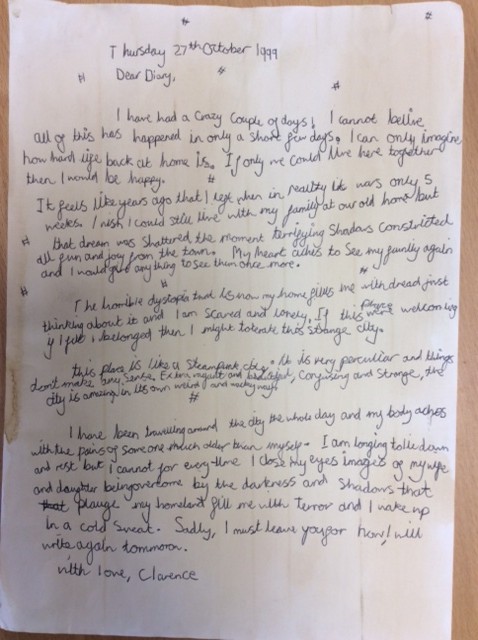 Thursday 27th October 1999
Dear Diary,
I have had a crazy couple of days! I cannot belive
all of this has happened in only a short few days. I can only imagine
how hard life back at home is. If only we could live here together
then I would be happy.
It feels like years ago that I left when in reality it was only 5
weeks. I wish I could still live with my family at our old home but
that dream was shattered the moment terrifying shadows constricted
all fun and joy from the town. My heart aches to see my family again
and I would give anything to see them once more.
The horrible dystopia that is now my home fills me with dread just
thinking about it and I am scared and lonely. If this place were welcoming
if I felt i belonged then I might tolerate this strange city.
this place is like a steampunk city. It is very peculiar and things
don't make any sense. Extravagant and twisted, Confusing and strange, the
city is amazing in its own weird and wacky ways
I have been travelling around the city the whole day and my body aches
with the pains of someone much older than myself. I am longing to lie down
and rest but i cannot for every time I close my eyes images of my wife
and daughter being overcome by the darkness and shadows that
plauge my homeland fill me with Terror and I wake up
in a cold sweat. Sadly, I must leave you for now! I will
write again tommorow.
with love, Clarence